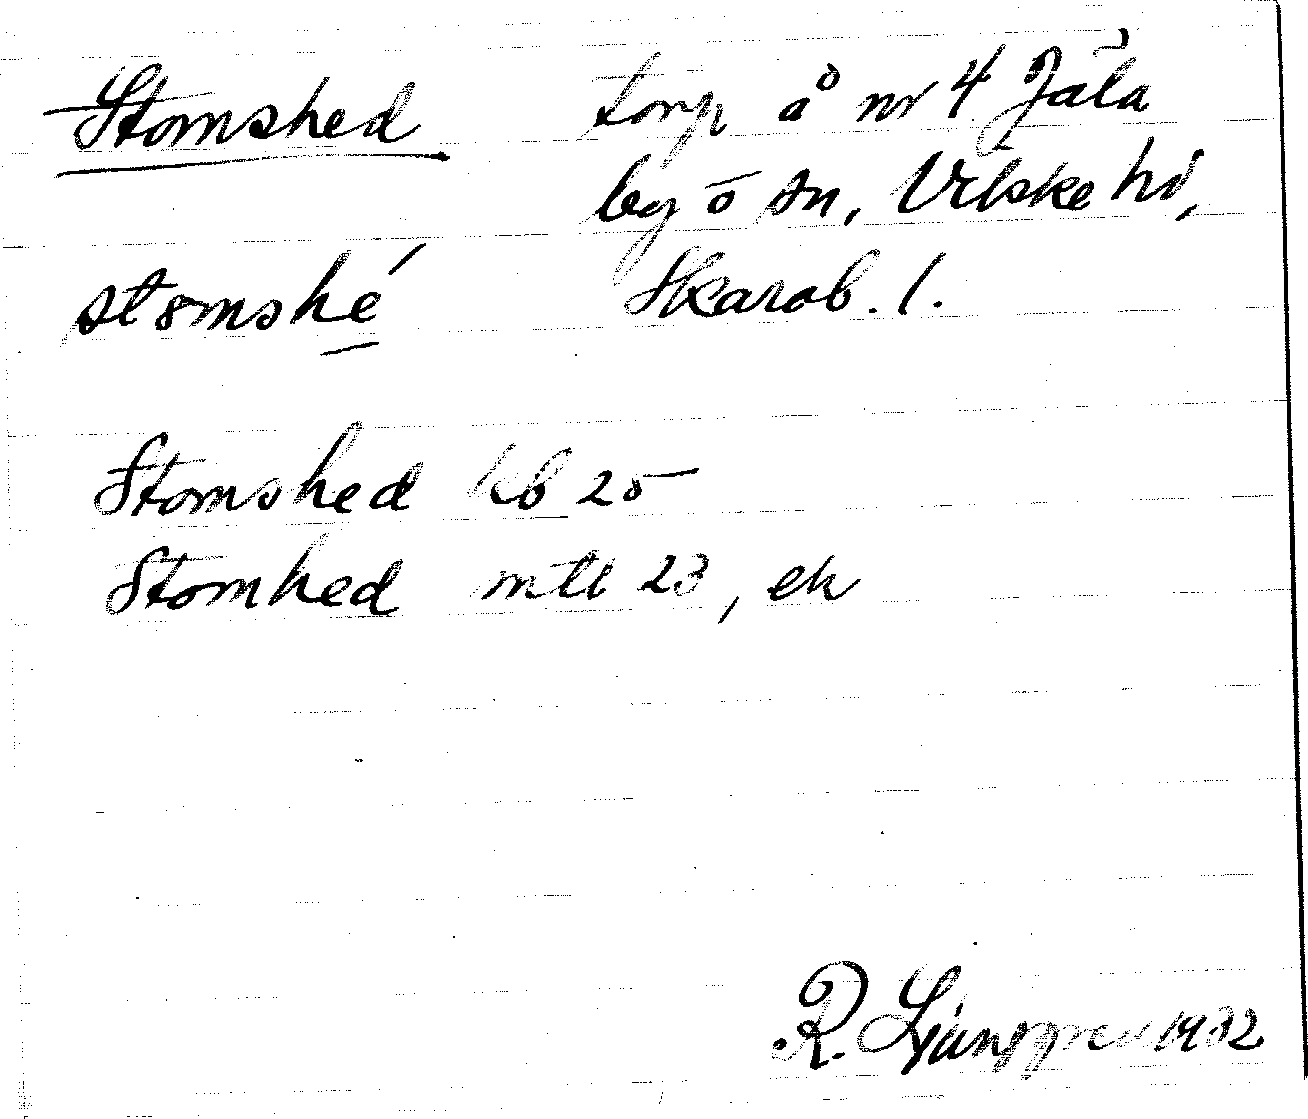 Stomshed torp å nr 4 Jäla
by o sn, Vilske hd,
stomshé Skarab. l.
Stomshed kb 25
Stomhed mtl 23, ek
R. Ljunggren 1932